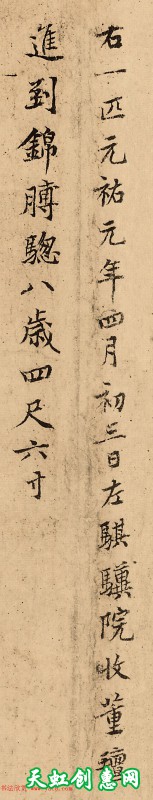 右一匹元祐元年四月初三日左騏驥院收董氊
進到錦膊驄八歲四尺六寸
天虹创意网